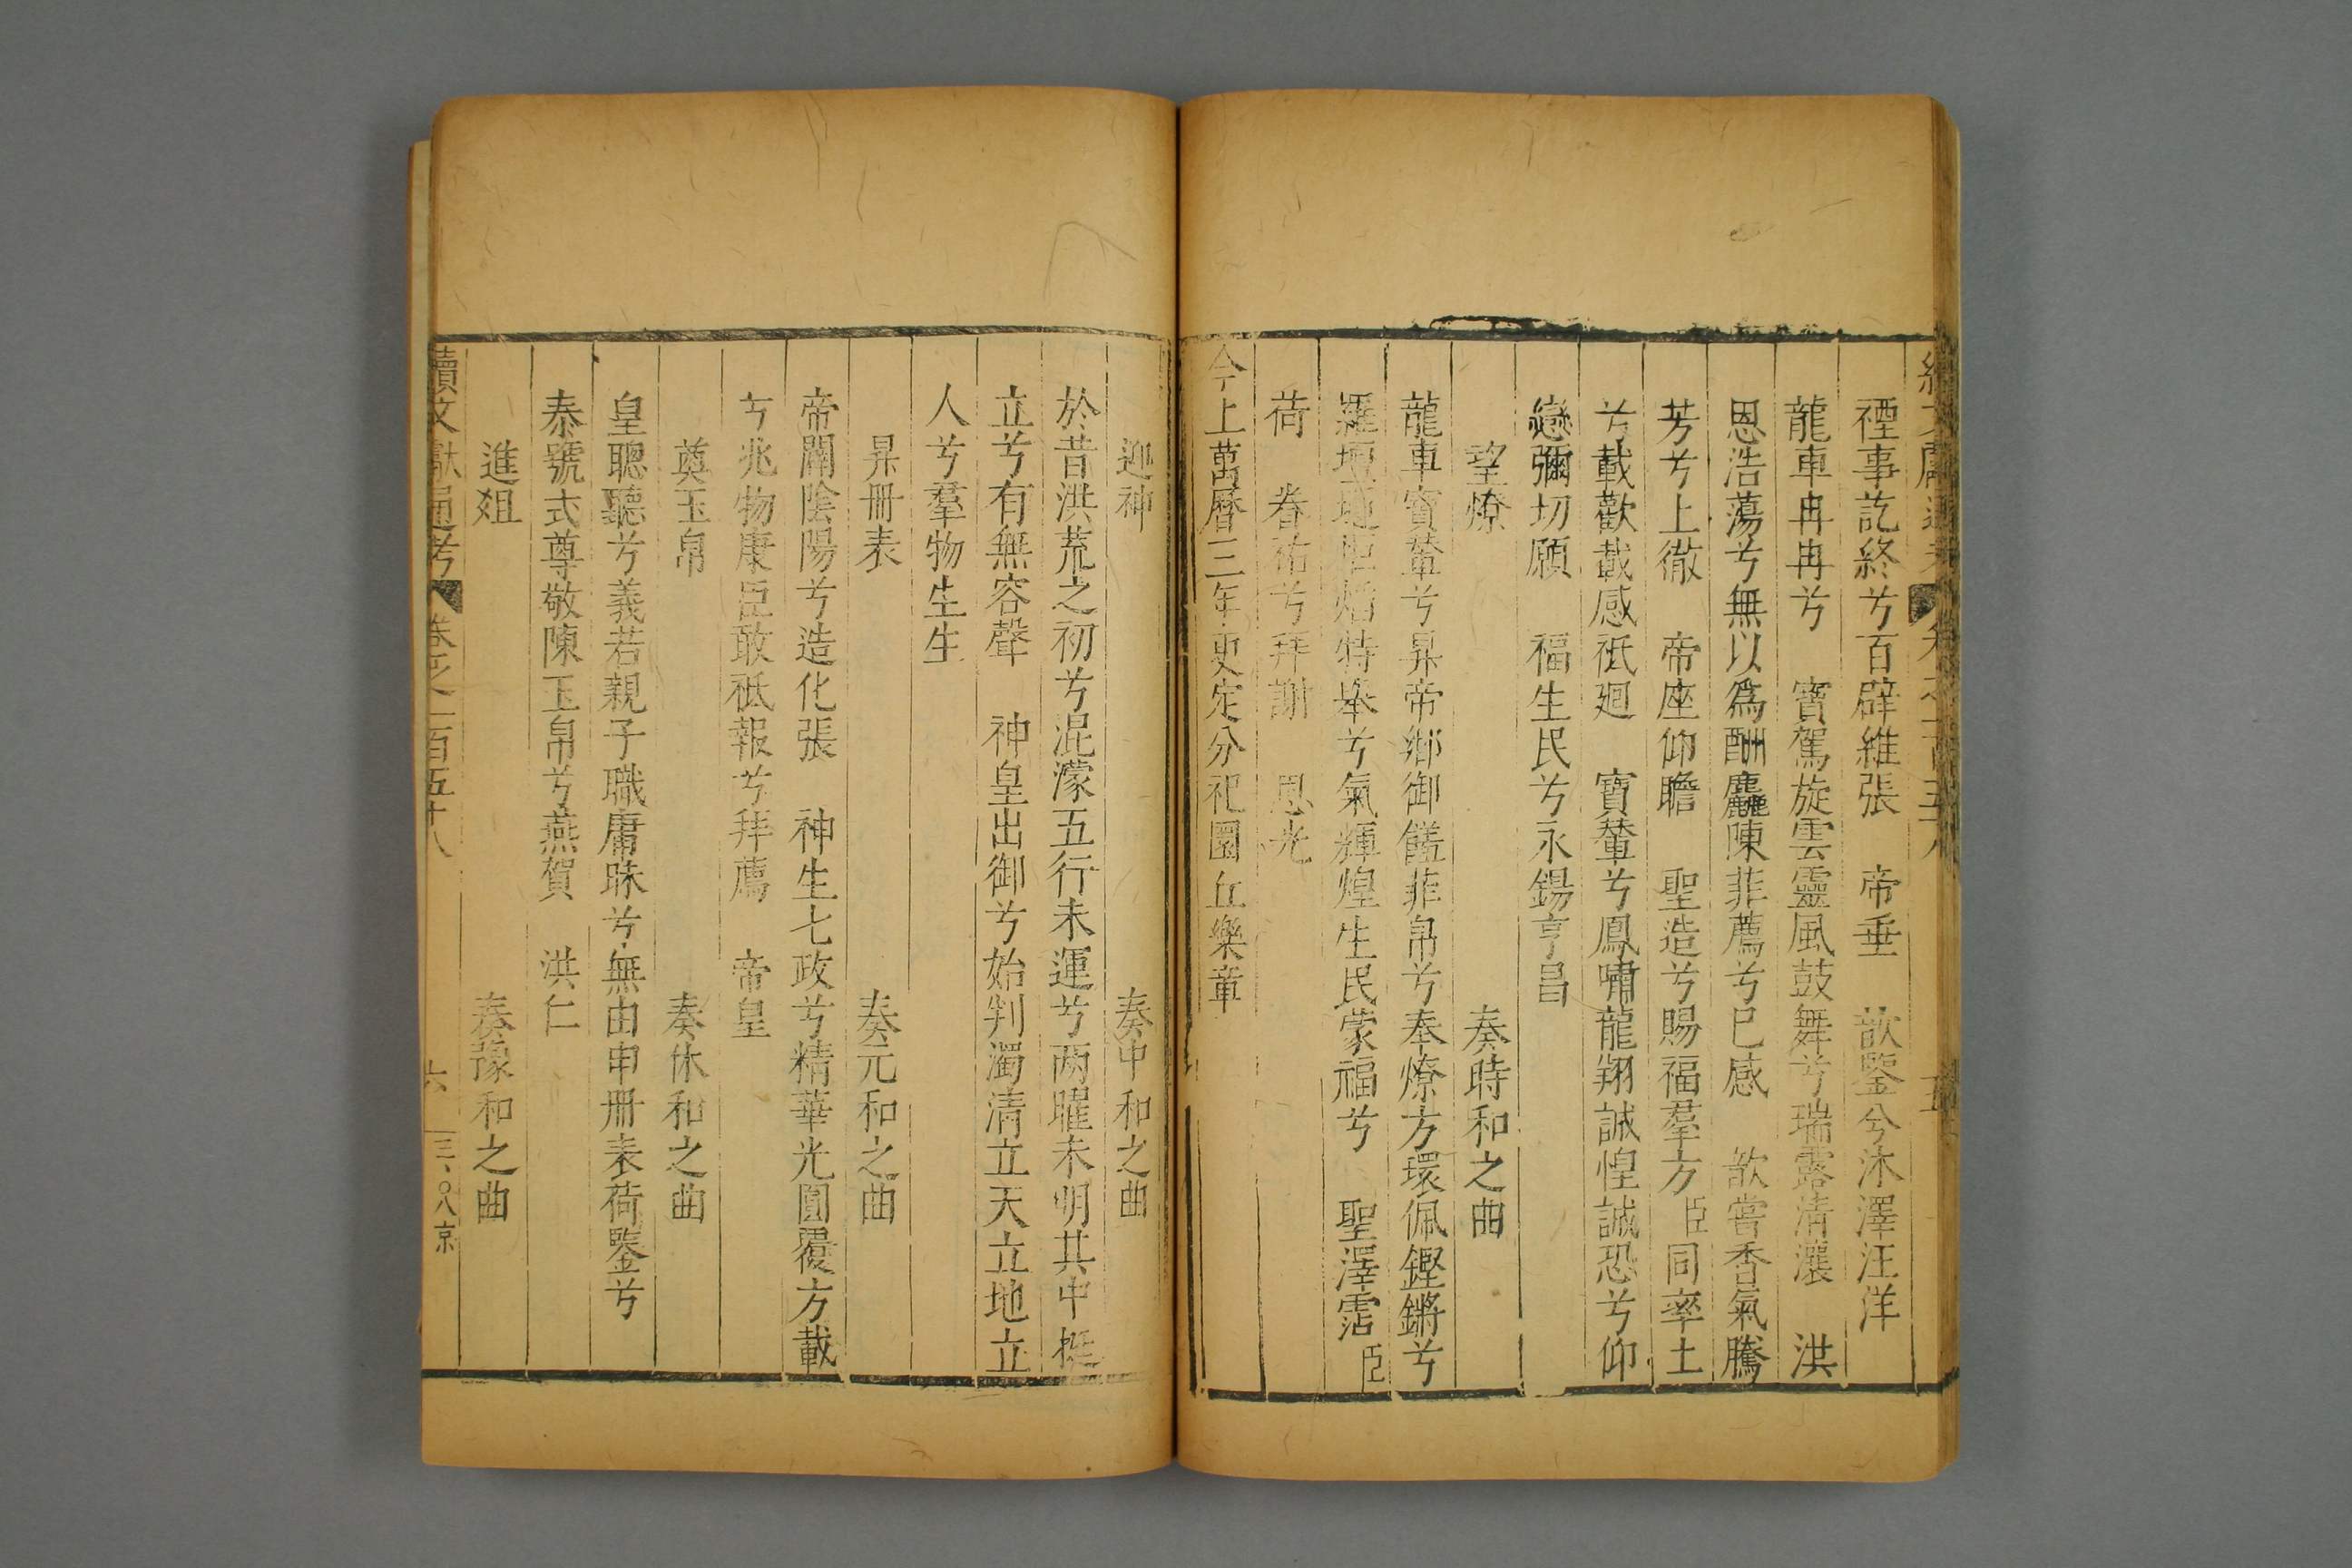 禋事訖終兮百辟維張　帝垂　歆鑒兮沐澤汪洋
龍車冉冉兮　寶駕旋雲靈風鼓舞兮瑞露清瀼　洪
恩浩蕩兮無以爲酬麤陳菲薦兮已感　歆嘗香氣騰
芳兮上徹　帝座仰瞻　聖造兮賜福羣方臣同率土
兮載歡載感祗廻　寶輦兮鳳嘯龍翔誠惶誠恐兮仰
戀彌切願　福生民兮永錫亨昌
望燎　奏時和之曲
龍車寶輦兮昇帝鄉御饈菲帛兮奉燎方環佩鏗鏘兮
羅壇壝炬焰特舉兮氣輝煌生民蒙福兮　聖澤霑臣
荷　眷祐兮拜謝　恩光
今上萬曆三年更定分祀圜丘樂章
迎神　奏中和之曲
於昔洪荒之初兮混濛五行未運兮兩曜未明其中挺
立兮有無容聲　神皇出御兮始判濁清立天立地立
人兮羣物生生
昇冊表　奏元和之曲
帝闢陰陽兮造化張　神生七政兮精華光圓覆方載
兮兆物康臣敢祗報兮拜薦　帝皇
奠玉帛　奏休和之曲
皇聰聽兮義若親子職庸昧兮無由申冊表荷鑒兮
泰號式尊敬陳玉帛兮燕賀　洪仁
進爼　奏豫和之曲
續文獻通考　卷之二百五十八　六　三、〇八京